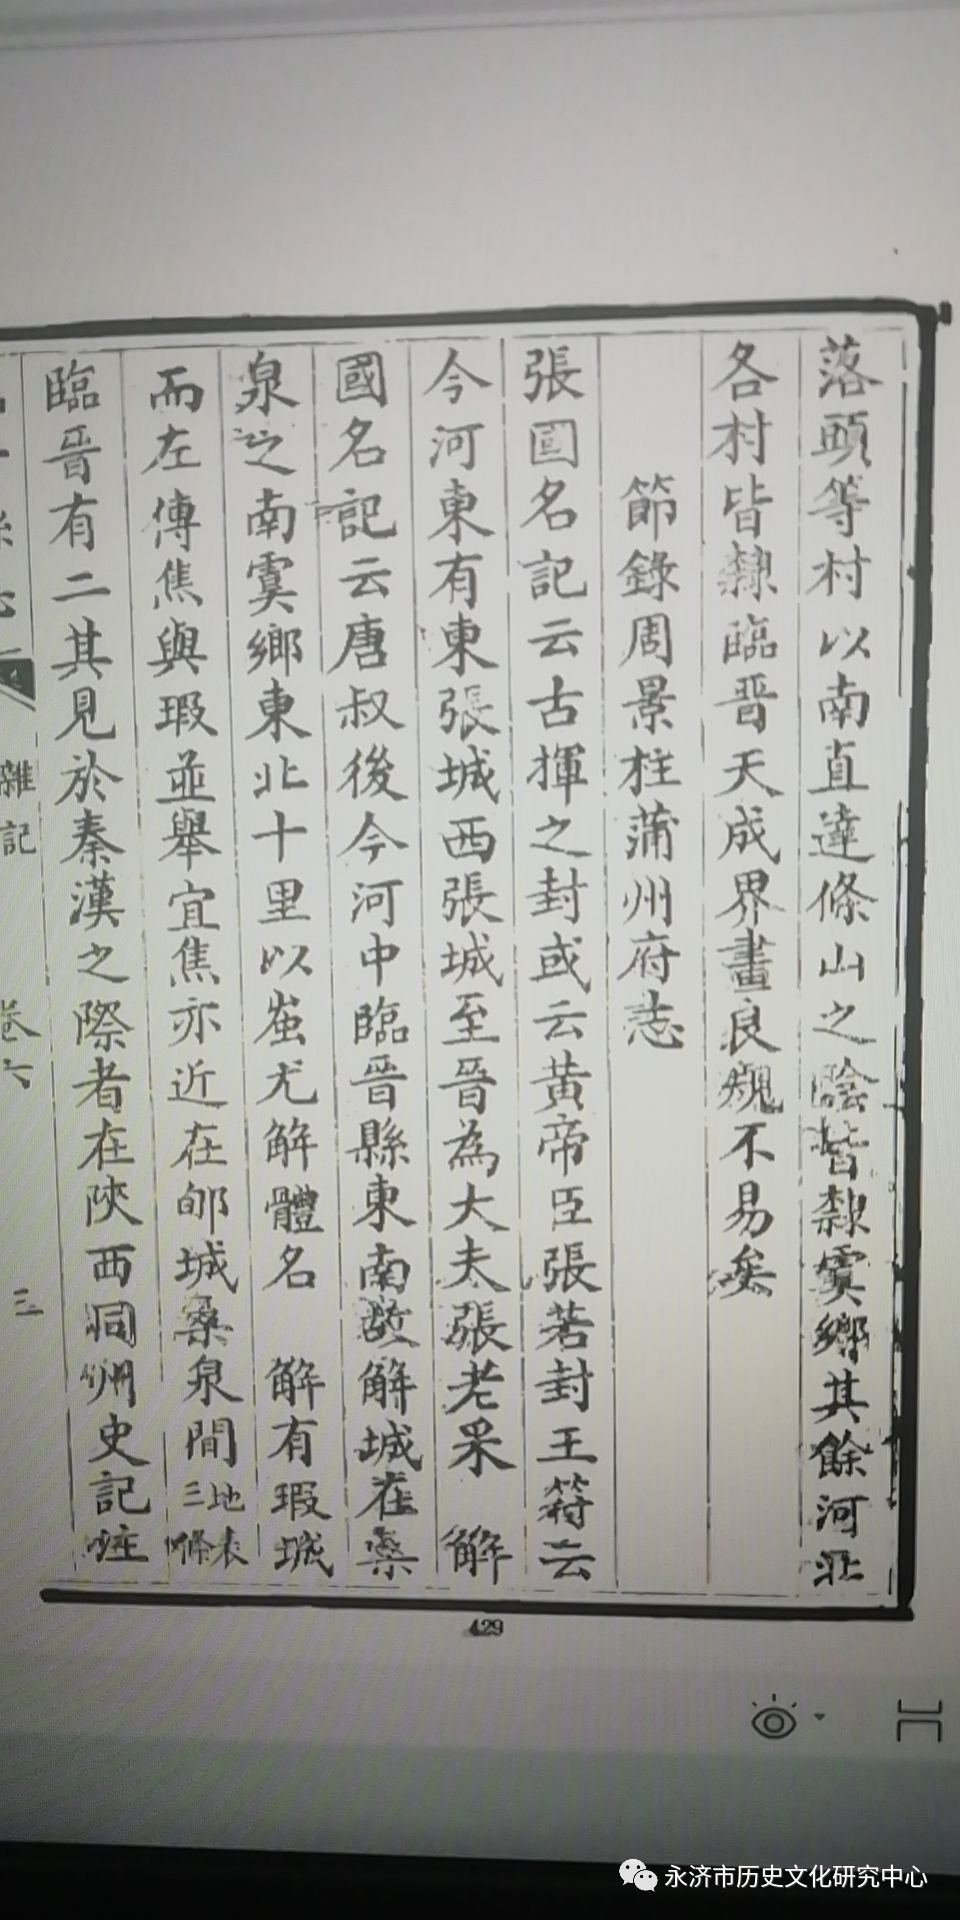 落頭等村以南直達條山之陰皆隸虞鄉其餘河北
各村皆隸臨晉天成界畫良規不易矣
節錄周景柱蒲州府志
張國名記云古揮之封或云黃帝臣張若封王符云
今河東有東張城西張城至晉為大夫張老采 解
國名記云唐叔後今河中臨晉縣東南故解城在桑
泉之南虞鄉東北十里以蚩尤解體名 解有瑕城
而左傳焦與瑕並舉宜焦亦近在郇城桑泉間
臨晉有二其見於秦漢之際者在陝西同州史記註
雜記
卷六
三
429
永济市历史文化研究中心